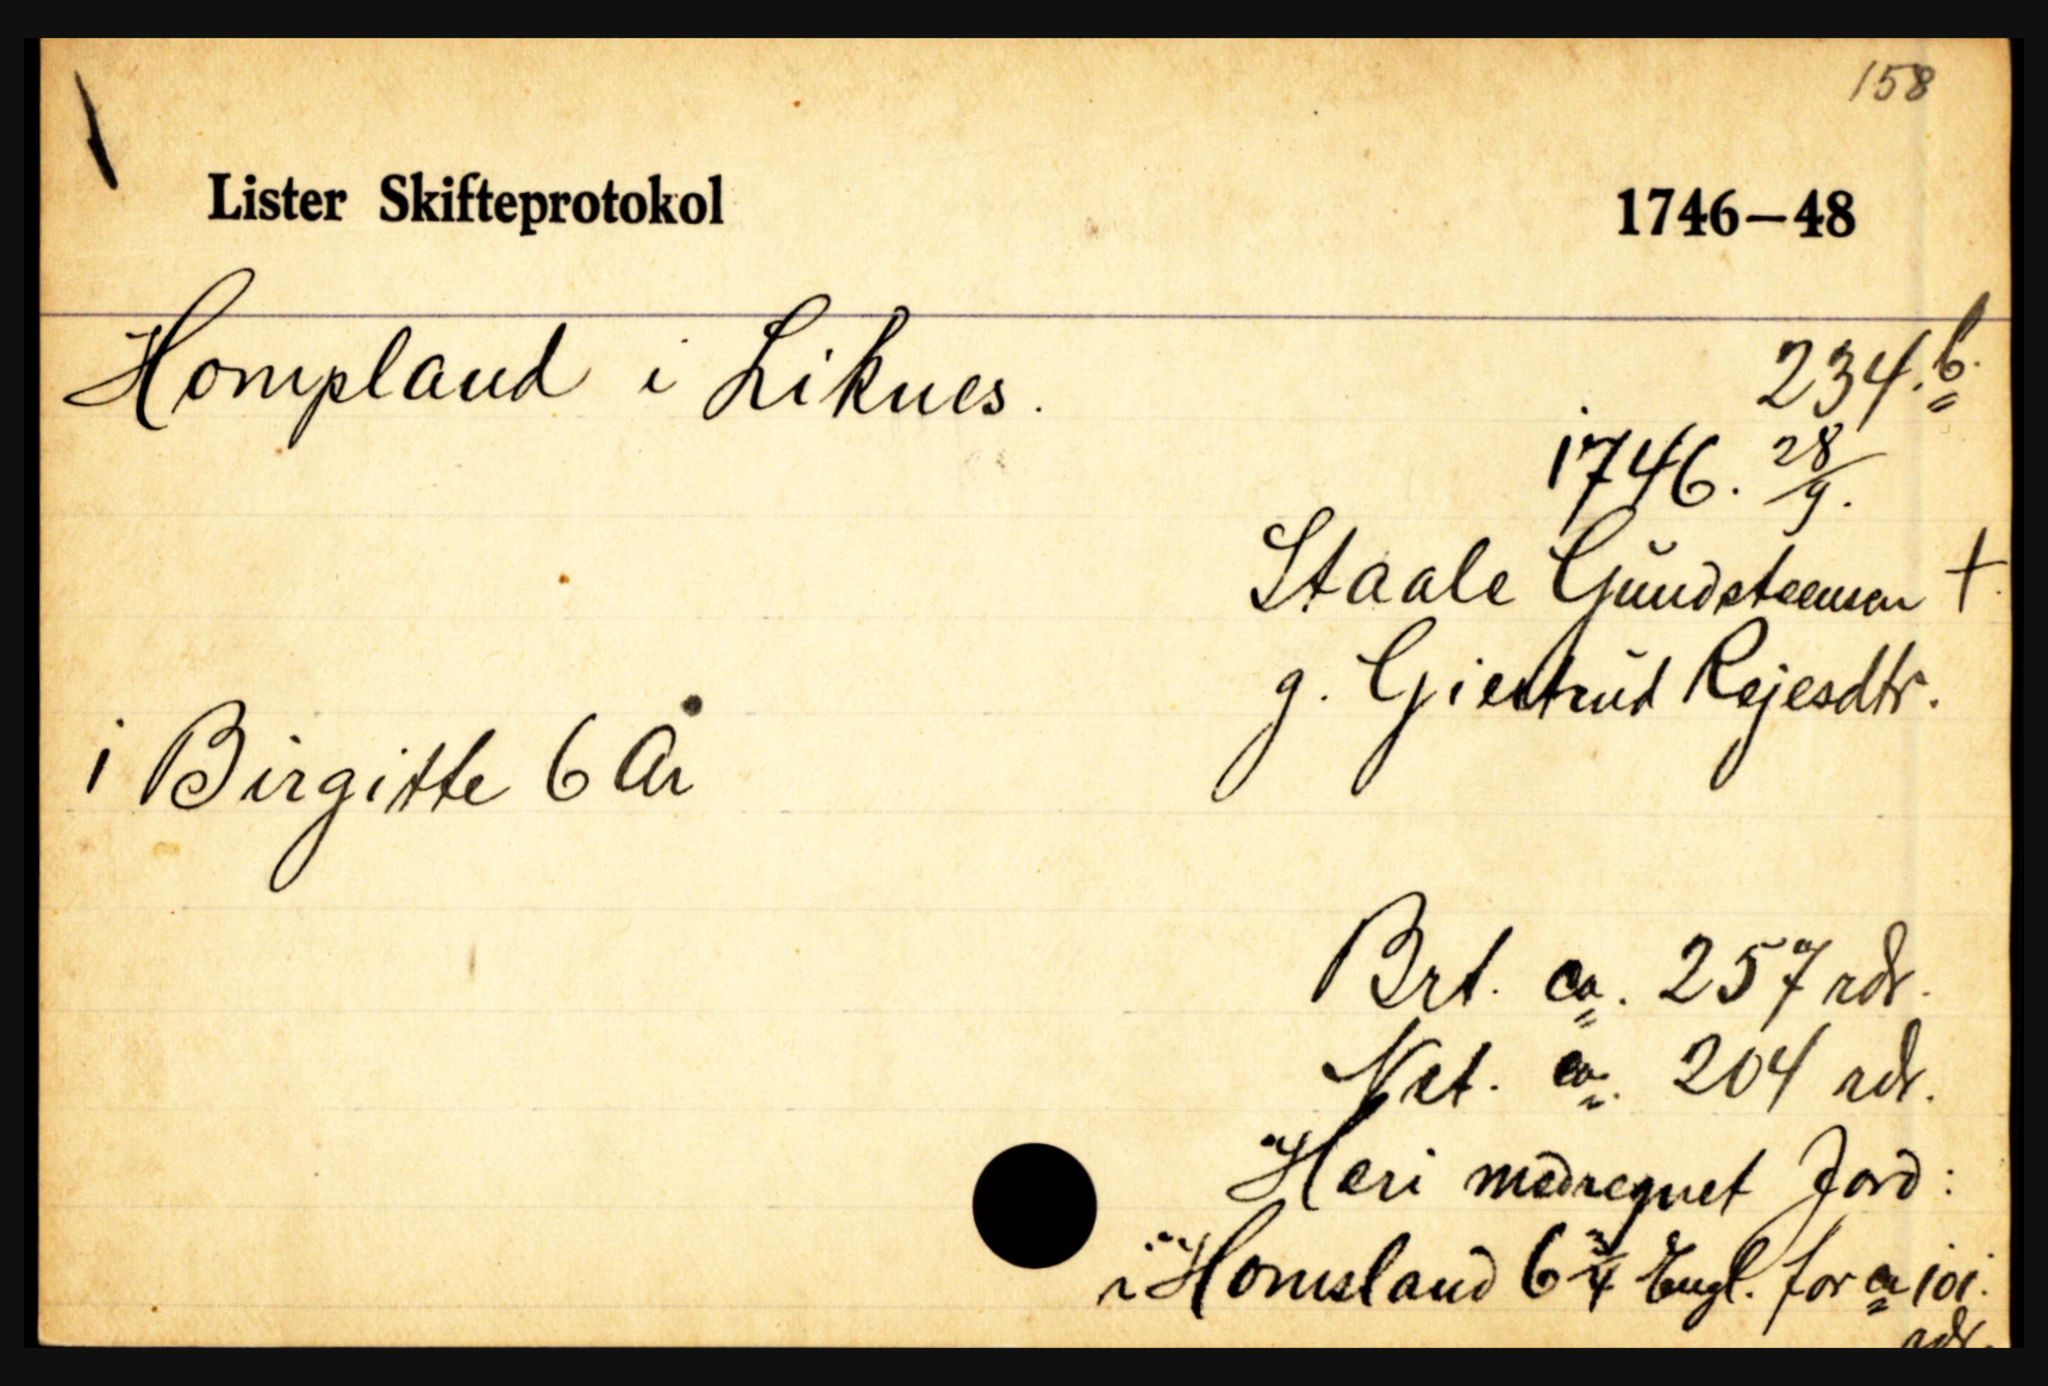 158
Lister Skifteprotokol 1746–48
Hompland i Liknes. 234.b.
1746. 28/9.
Staale Gŭndsteensen +
g. Giertrŭd Rejesdtr.
1 Birgitte 6 År
Brt. ca. 257 rdr.
Net. ca. 204 rdr.
Heri medregnet Jord:
i Homsland 6 3/4 Engl. for ca 101.
rdr.